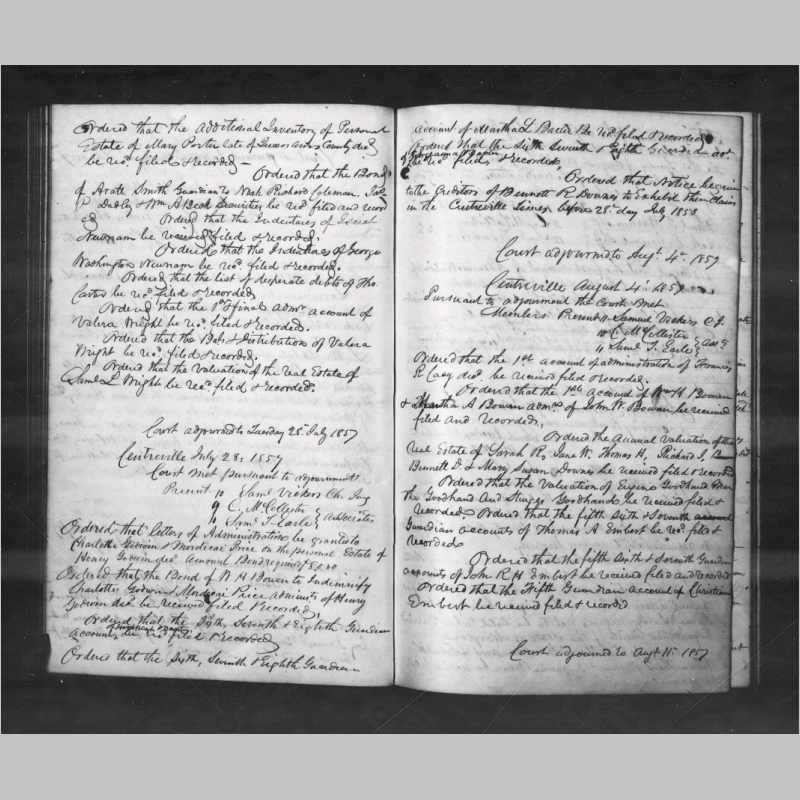 Ordered that the additional Inventory of Personal
Estate of Mary Porter late of Queen Anns County decd
be recd filed & recorded
Ordered that the Bond
of Arate Smith Guardian to Richard Coleman
& Wm A Beck be recd filed and record
ed
Ordered that the Indentures of
Newnam be received filed & recorded.
Ordered that the Indentures of George
Washington Newnam be recd. filed & recorded.
Ordered that the list of desperate debts of Tho
Carter be recd. filed & recorded
Ordered that the 1st & final admr account of
Valera Wright be recd. filed & recorded.
Ordered that the Bal. & Distribution of Valera
Wright be recd. filed & recorded.
Ordered that the valuation of the real Estate of
Saml L Wright be recd filed & recorded.
Court adjourned to Tuesday 28th July 1857
Centreville July 28th 1857
Court met pursuant to adjournment
Present Saml Vickers Ch. Jus
C. McCollester
Saml T. Earle } Associates
Ordered that letters of Administration be granted to
Charlotte Godwin & Mordicai Price on the personal Estate of
Henry Godwin decd amount Bond required
Ordered that the Bond of W H Bowen to Indemnify
Charlotte Godwin & Price administs of Henry
Godwin decd be received filed & recorded
Ordered that the Sixth, Seventh & Eighth Guardian
accounts be recd filed & recorded
Ordered that the Sixth, Seventh & Eighth Guardian
account of Martha L be recd. filed & recorded
Ordered that the Sixth Seventh & Eighth Guardian acct.
be recd filed & recorded
Ordered that Notice be given
to the Creditors of Bennett R Downes to Exhibit their claims
in the Centreville before 28th day July 1858
Court adjourned to Augt. 4th 1857
Centreville August 4th 1857
Pursuant to adjournment the Court met
Members Present Samuel Vickers C J.
C. McCollester
Saml. T. Earle } Asso
Ordered that the 1st account of administration of Francis
R Casey decd. be received filed & recorded.
Ordered that the 1st account of Wm H Bowen
& Martha A Bowen admrs of John W. Bowen be received
filed and recorded.
Ordered the Annual Valuation of the
real Estate of Sarah R, Jane W. Thomas H, Richard J,
Bennett D. & Mary Susan Downes be received filed & recorded
Ordered that the valuation of Eugene Goodhand
Goodhand And Goodhand be received filed &
recorded Ordered that the fifth sixth & Seventh account
Guardian accounts of Thomas A Embert be recd filed &
recorded
Ordered that the fifth Sixth & Seventh Guardian
accounts of John R. H Embert be received filed and recorded
Ordered that the Fifth Guardian Account of Christian
Embert be received filed & recorded
Court adjourned to Augt 11th 1857